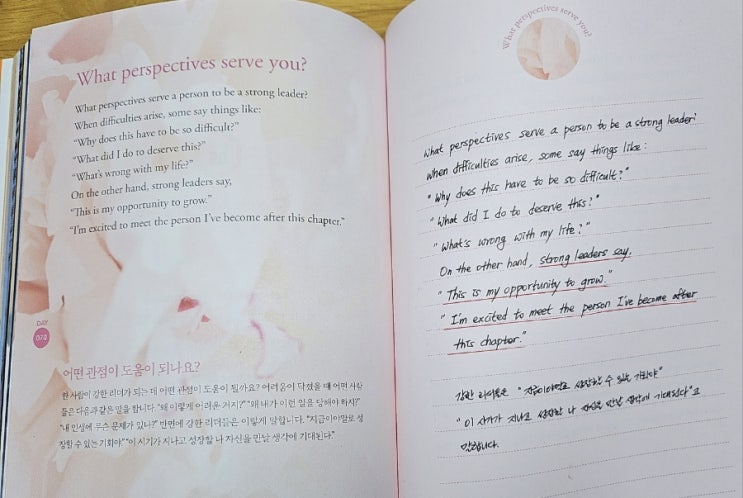 What perspectives serve you?
What perspectives serve a person to be a strong leader?
When difficulties arise, some say things like:
"Why does this have to be so difficult?"
"What did I do to deserve this?"
"What's wrong with my life?"
On the other hand, strong leaders say,
"This is my opportunity to grow."
"I'm excited to meet the person I've become after this chapter."
DAY
어떤 관점이 도움이 되나요?
한 사람이 강한 리더가 되는 데 어떤 관점이 도움이 될까요? 어려움이 닥쳤을 때 어떤 사람
들은 다음과 같은 말을 합니다. "왜 이렇게 어려운 거지?" "왜 내가 이런 일을 당해야 하지?"
"내 인생에 무슨 문제가 있나?" 반면에 강한 리더들은 이렇게 말합니다. "지금이야말로 성
장할 수 있는 기회야." "이 시기가 지나고 성장할 나 자신을 만날 생각에 기대된다."
What perspectives serve you?
What perspectives serve a person to be a strong leader?
When difficulties arise, some say things like:
"Why does this have to be so difficult?"
"What did I do to deserve this?"
"What's wrong with my life?"
On the other hand, strong leaders say,
"This is my opportunity to grow."
"I'm excited to meet the person I've become after
this chapter."
강한 리더들은 "지금이야말로 성장할 수 있는 기회야"
"이 시기가 지나고 성장할 나 자신을 만날 생각에 기대된다"고
말합니다.